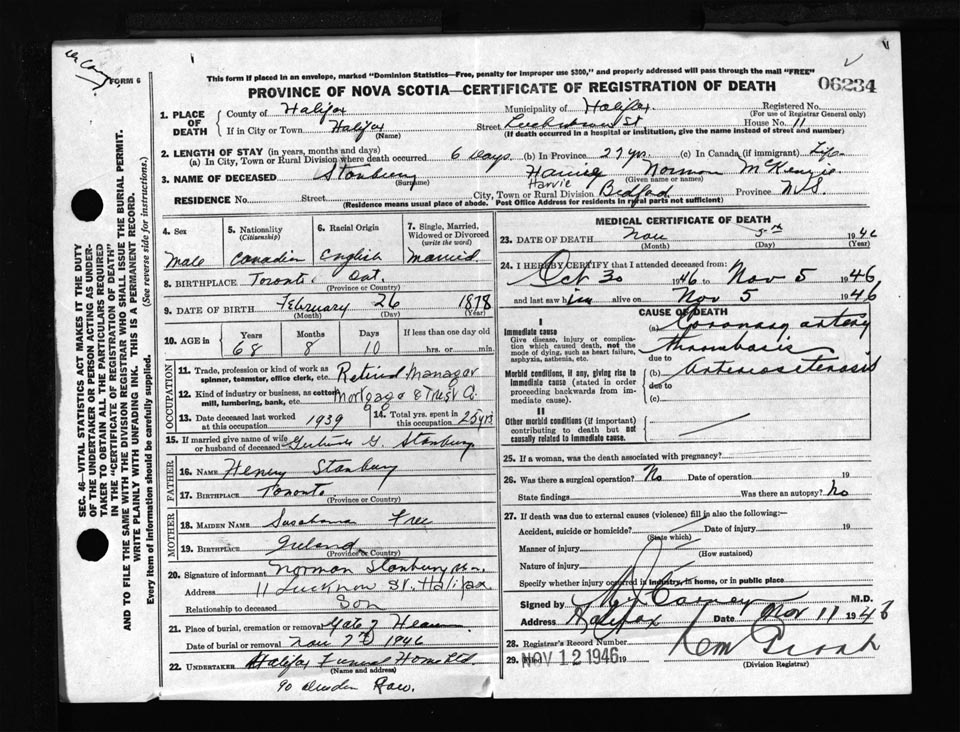 FORM 6
This form if placed in an envelope, marked "Dominion Statistics—Free, penalty for improper use $300," and properly addressed will pass through the mail "FREE"
PROVINCE OF NOVA SCOTIA—CERTIFICATE OF REGISTRATION OF DEATH
06234
1. PLACE OF DEATH
County of Halifax Municipality of Halifax. Registered No.
(For use of Registrar General only)
If in City or Town Halifax (Name) Street St House No. 11
(If death occurred in a hospital or institution, give the name instead of street and number)
2. LENGTH OF STAY (in years, months and days)
(a) In City, Town or Rural Division where death occurred 6 days (b) In Province 27 yrs. (c) In Canada (if immigrant) Life
3. NAME OF DECEASED Stanbury Norman McKenzie
Surname Harvie Given name or names)
RESIDENCE No. Street City, Town or Rural Division Bedford Province N S
(Residence means usual place of abode. Post Office Address for residents in rural parts not sufficient)
SEC. 46—VITAL STATISTICS ACT MAKES IT THE DUTY
OF THE UNDERTAKER OR PERSON ACTING AS UNDER-
TAKER TO OBTAIN ALL THE PARTICULARS REQUIRED
IN THE "CERTIFICATE OF REGISTRATION OF DEATH"
AND TO FILE THE SAME WITH THE DIVISION REGISTRAR WHO SHALL ISSUE THE BURIAL PERMIT.
WRITE PLAINLY WITH UNFADING INK. THIS IS A PERMANENT RECORD.
Every item of information should be carefully supplied. (See reverse side for instructions.)
4. Sex
male
5. Nationality
(Citizenship)
Canadian
6. Racial Origin
English
7. Single, Married,
Widowed or Divorced
(write the word)
Married.
8. BIRTHPLACE Toronto Ont.
(Province or Country)
9. DATE OF BIRTH February 26 1878
(Month) (Day) (Year)
10. AGE in
Years Months Days If less than one day old
68 8 10 hrs. or min.
OCCUPATION
11. Trade, profession or kind of work as
spinner, teamster, office clerk, etc. Retired Manager
12. Kind of industry or business, as cotton
mill, lumbering, bank, etc. Mortgage & Trust Co.
13. Date deceased last worked
at this occupation 1939
14. Total yrs. spent in
this occupation 25 yrs
15. If married give name of wife
or husband of deceased Gertrude G. Stanbury
FATHER
16. NAME Henry Stanbury
17. BIRTHPLACE Toronto
(Province or Country)
MOTHER
18. MAIDEN NAME Free
19. BIRTHPLACE Ireland
(Province or Country)
20. Signature of informant Norman Stanbury
Address 11 Lucknow St. Halifax
Relationship to deceased Son
21. Place of burial, cremation or removal Gate of Heaven
Date of burial or removal Nov 7th 1946
22. UNDERTAKER Halifax Funeral Home Ltd.
(Name and address)
90 Row.
MEDICAL CERTIFICATE OF DEATH
23. DATE OF DEATH Nov 5th 1946
(Month) (Day) (Year)
24. I HEREBY CERTIFY that I attended deceased from:
Oct 30 1946 to Nov 5 1946
and last saw him alive on Nov 5 1946
CAUSE OF DEATH
I
Immediate cause
Give disease, injury or complica-
tion which caused death, not the
mode of dying, such as heart failure,
asphyxia, asthenia, etc.
(a) Coronary artery
thrombosis
due to
Morbid conditions, if any, giving rise to
immediate cause (stated in order
proceeding backwards from im-
mediate cause).
(b) Arteriosclerosis
due to
(c)
II
Other morbid conditions (if important)
contributing to death but not
causally related to immediate cause.
25. If a woman, was the death associated with pregnancy?
26. Was there a surgical operation? No Date of operation 19
State findings Was there an autopsy? No
27. If death was due to external causes (violence) fill in also the following:—
Accident, suicide or homicide? Date of injury 19
(State which)
Manner of injury
(How sustained)
Nature of injury
Specify whether injury occurred in industry, in home, or in public place
Signed by Carney M.D.
Address Halifax Date Nov 11 194
28. Registrar's Record Number
29. NOV 12 1946 19
(Division Registrar)